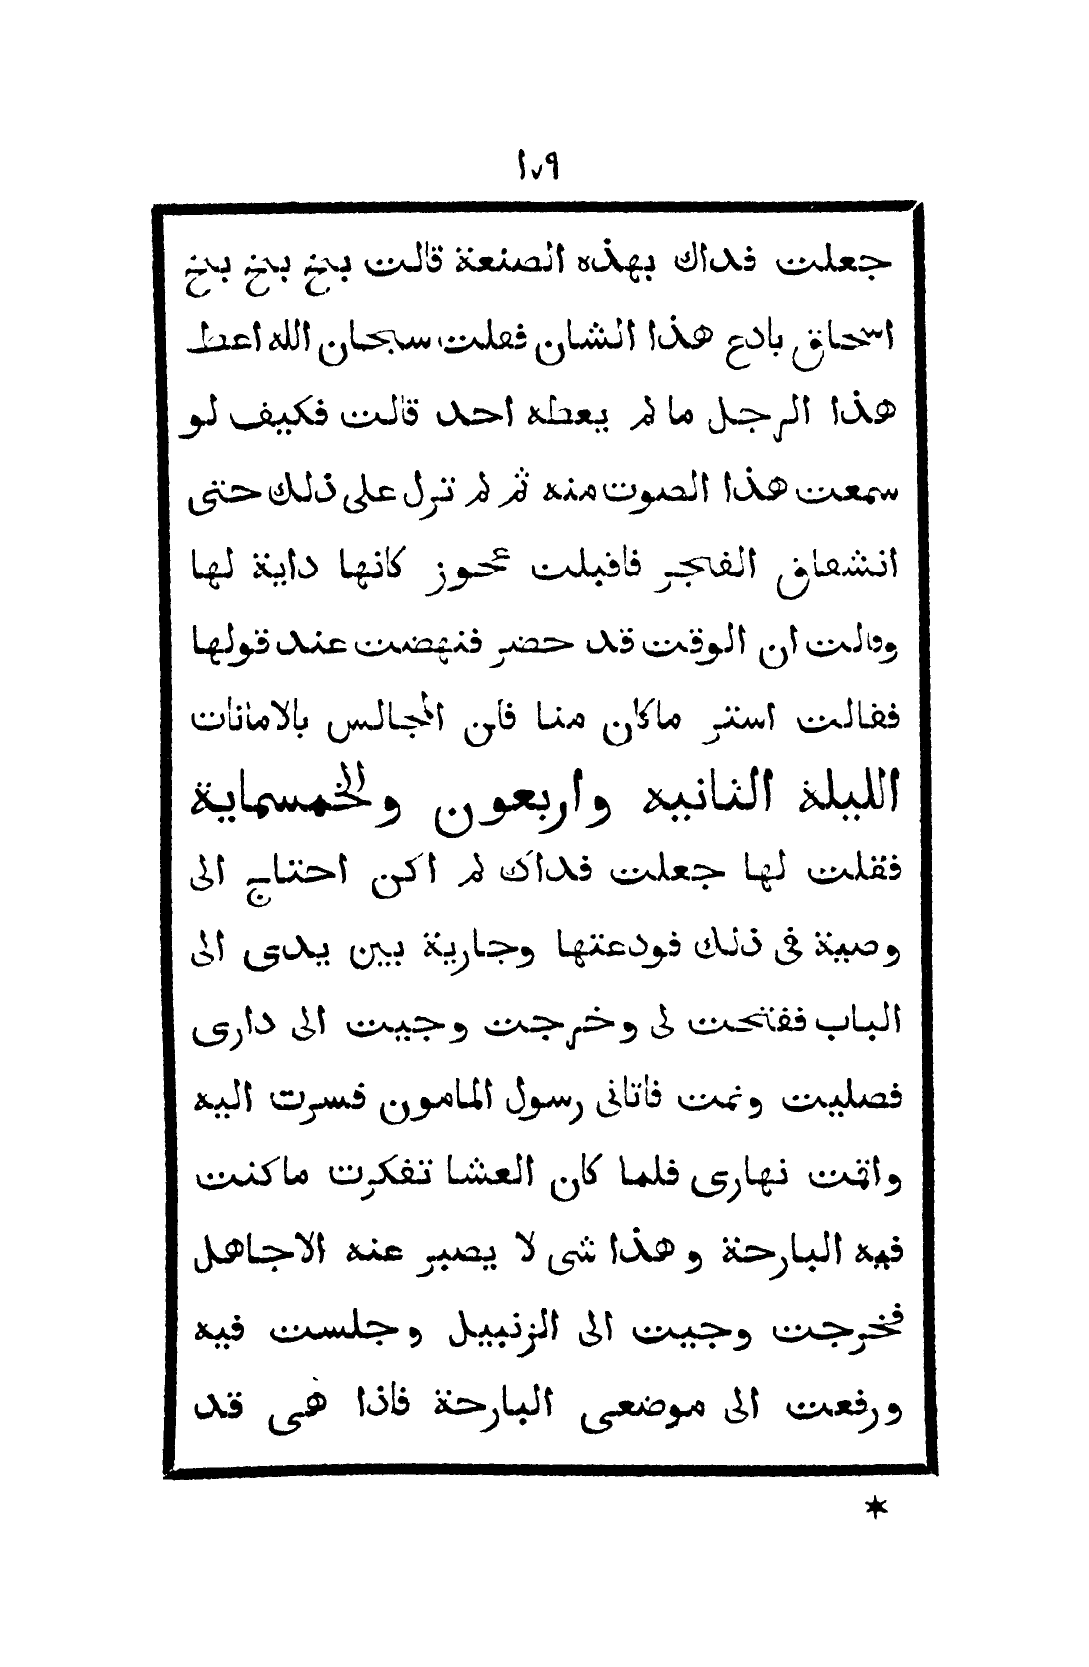 ١٧٩
جعلت فداك بهذه الصنعة قالت بخ بخ بخ بخ
اسحاق بادع هذا الشان فقلت سبحان الله اعطى
هذا الرجل ما لم يعطه احد قالت فكيف لو
سمعت هذا الصوت منه ثم لم تزل على ذلك حتى
انشقاق الفجر فاقبلت عجوز كانها داية لها
وقالت ان الوقت قد حضر فنهضت عند قولها
فقالت استر ماكان منا فان المجالس بالامانات
الليلة الثانيه واربعون والخمسماية
فقلت لها جعلت فداك لم اكن احتاج الى
وصية فى ذلك فودعتها وجارية بين يدى الى
الباب ففتحت لى وخرجت وجيت الى دارى
فصليت ونمت فاتانى رسول المامون فسرت اليه
واقمت نهارى فلما كان العشا تفكرت ماكنت
فيه البارحة وهذا شى لا يصبر عنه الاجاهل
فخرجت وجيت الى الزنبيل وجلست فيه
ورفعت الى موضعى البارحة فاذا هى قد
*